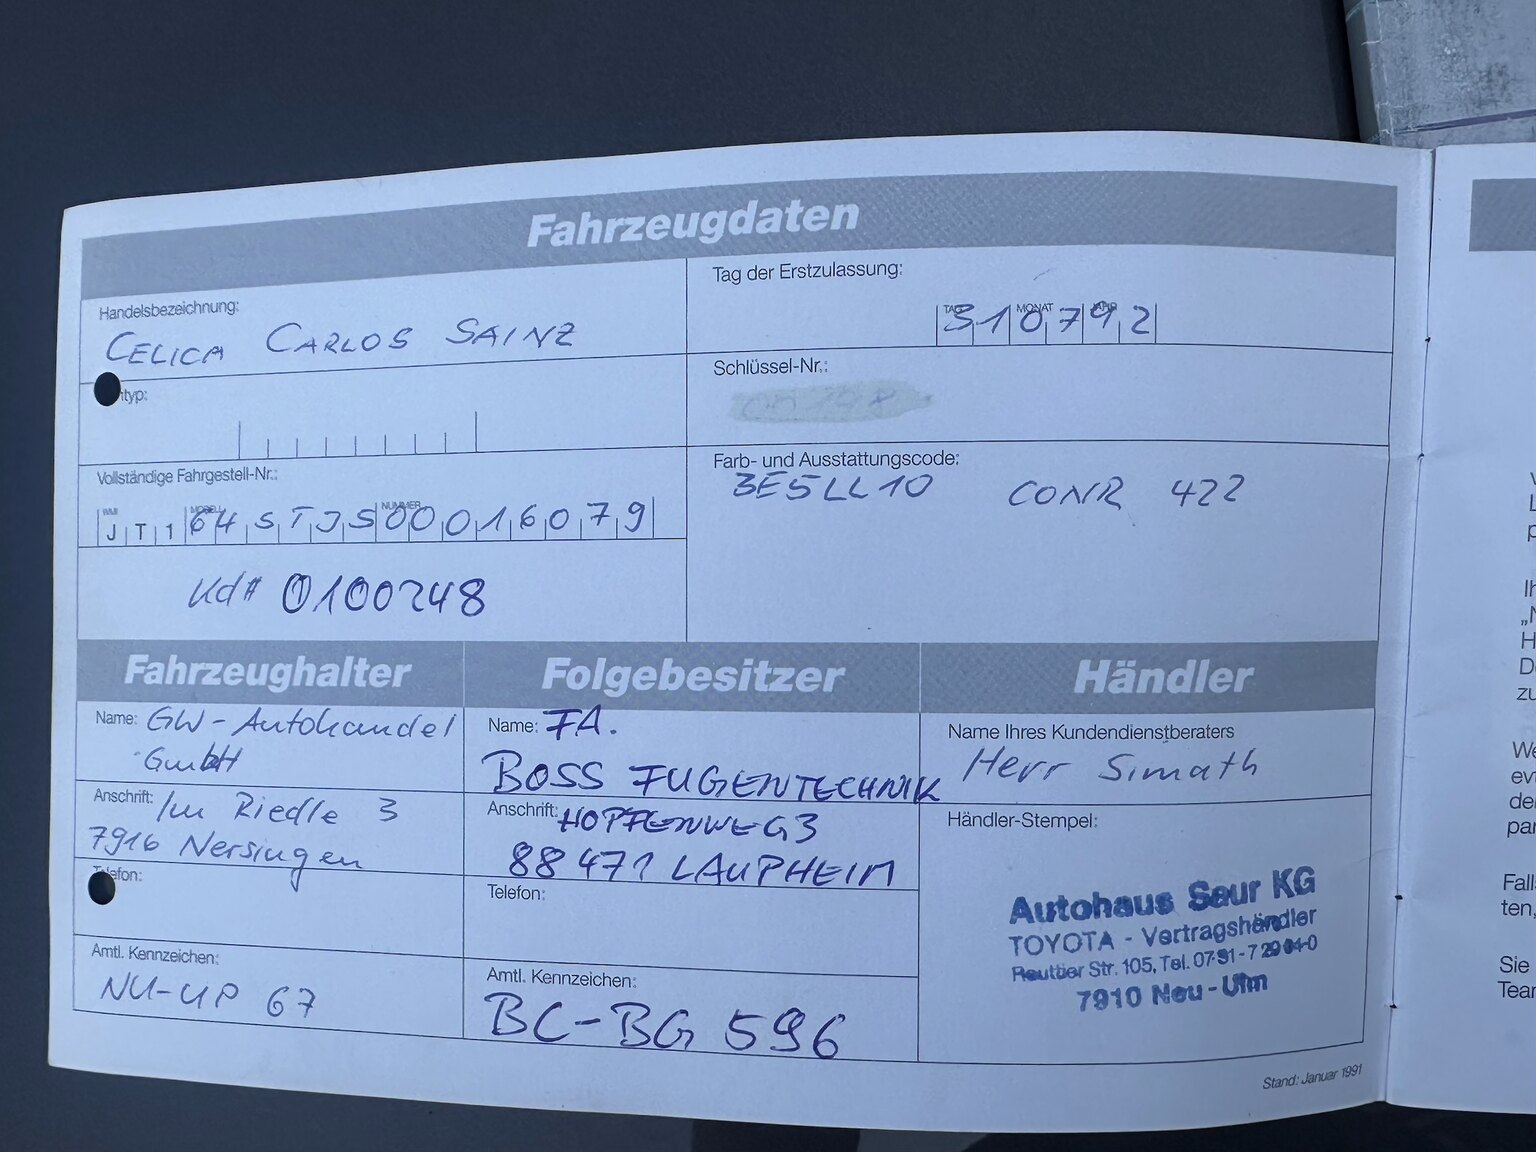 Fahrzeugdaten
Handelsbezeichnung:
CELICA CARLOS SAINZ
Tag der Erstzulassung:
TAG MONAT JAHR
310792
typ:
Schlüssel-Nr.:
Vollständige Fahrgestell-Nr.:
WMI MODELL NUMMER
JT164STJS00016079
Farb- und Ausstattungscode:
3E5LL10 CONR 422
Kd# 0100248
Fahrzeughalter
Name: GW-Autohandel
GmbH
Anschrift: Im Riedle 3
7916 Nersingen
Telefon:
Amtl. Kennzeichen:
NU-UP 67
Folgebesitzer
Name: FA.
BOSS FUGENTECHNIK
Anschrift: HOPFENWEG 3
88471 LAUPHEIM
Telefon:
Amtl. Kennzeichen:
BC-BG 596
Händler
Name Ihres Kundendienstberaters
Herr Simath
Händler-Stempel:
Autohaus Saur KG
TOYOTA - Vertragshändler
Reuttier Str. 105, Tel.
7910 Neu-Ulm
Stand: Januar 1991